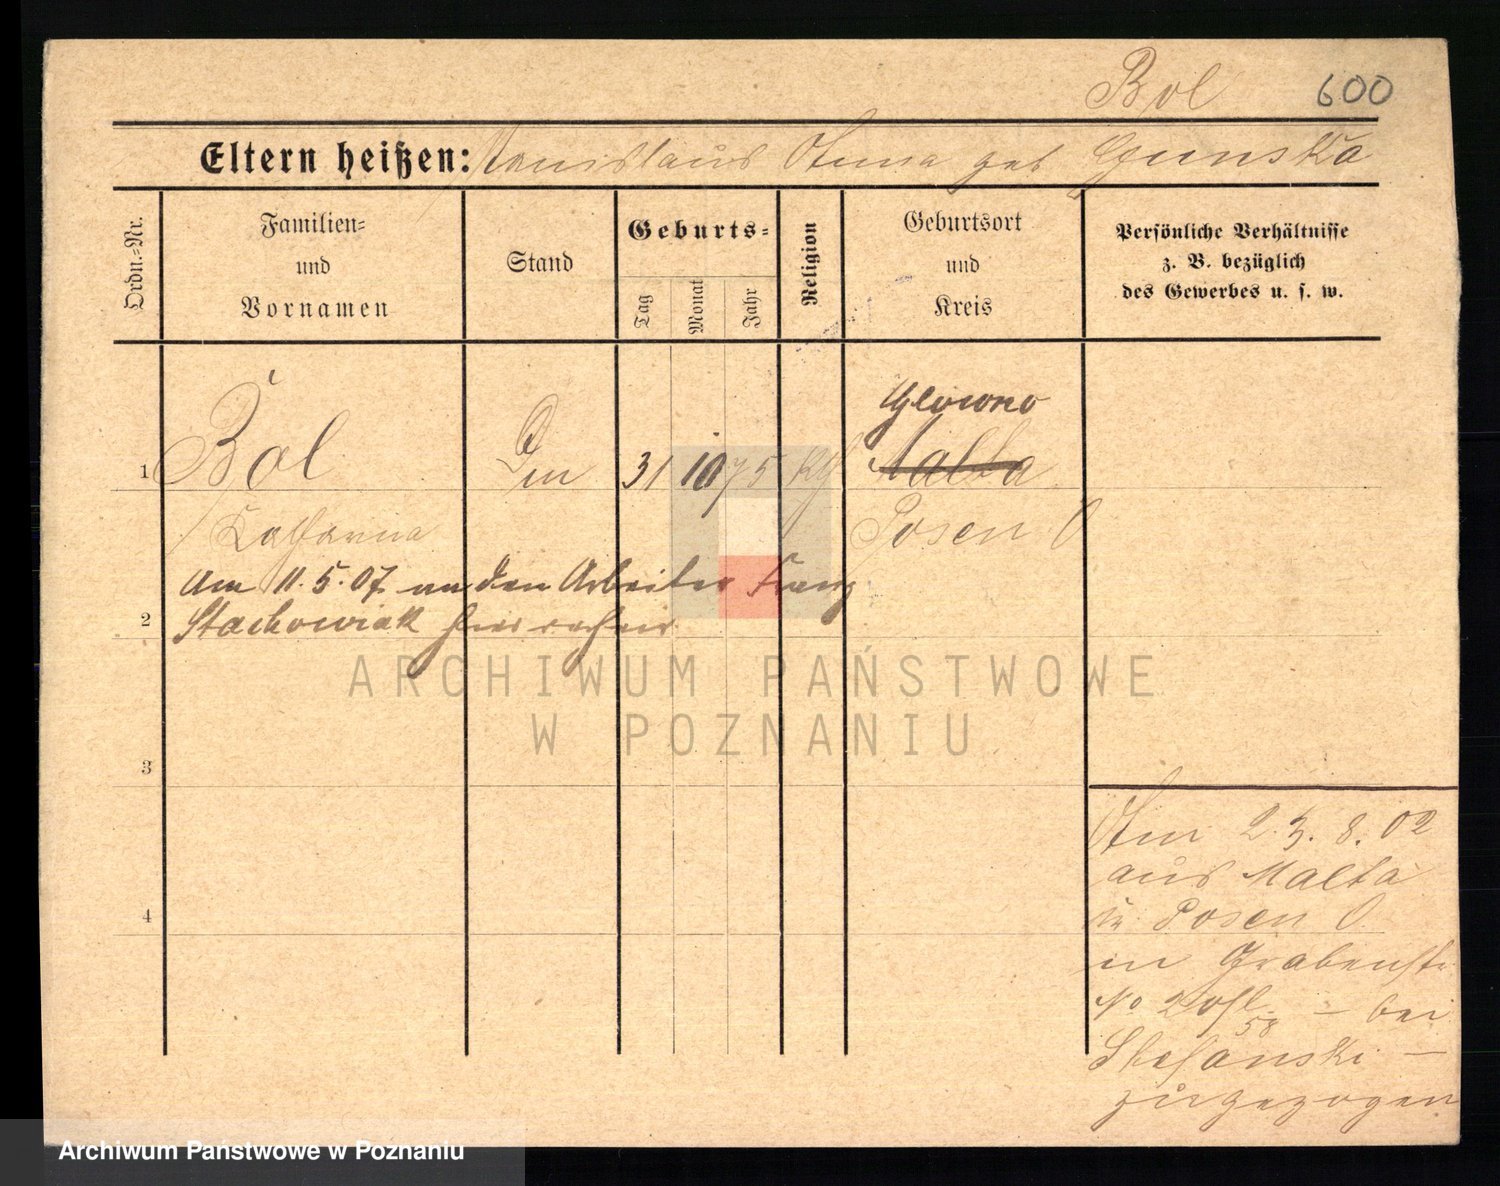 Bol 600
Eltern heißen: Stanislaus Anna geb
Ordn.-Nr.
Familien-
und
Vornamen
Stand
Geburts-
Tag
Monat
Jahr
Religion
Geburtsort
und
Kreis
Persönliche Verhältnisse
z. B. bezüglich
des Gewerbes u. s. w.
Glowno
1 Bol 31 10 75 Malta
Katharina Posen O
Am 11.5.07 an den Arbeiter Franz
2 Stachowiak
3
Am 23.8.02
aus Malta
4
Posen O.
in Grabenstr
No 20 bei
58
Stefanski –
zugezogen
ARCHIWUM PAŃSTWOWE
W POZNANIU
Archiwum Państwowe w Poznaniu